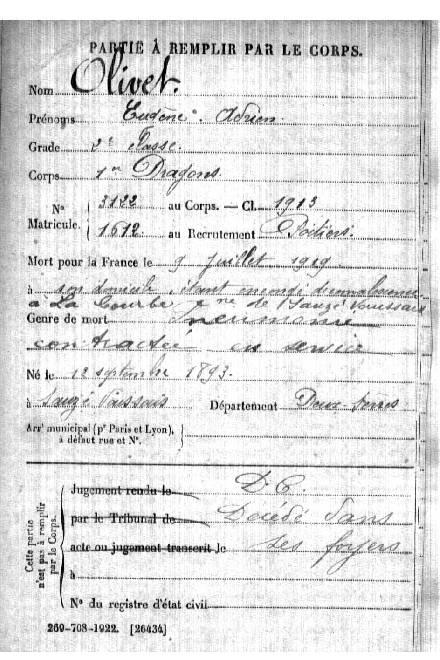 PARTIE À REMPLIR PAR LE CORPS.
Nom Olivet.
Prénoms Eugène. Adrien.
Grade 2e Classe.
Corps 1er Dragons.
N° Matricule. 3122 au Corps. — Cl. 1913
1612 au Recrutement Poitiers.
Mort pour la France le 9 Juillet 1919
à son domicile, étant
à La Courbe de Sauzé Vaussais
Genre de mort Pneumonie
contractée en service
Né le 12 septembre 1893.
à Sauzé Vaussais Département Deux-Sèvres
Arrt municipal (pr Paris et Lyon), à défaut rue et N°.
Cette partie n'est pas à remplir par le Corps.
Jugement rendu le D.C.
par le Tribunal de Décédé dans
acte ou jugement transcrit le ses foyers
à
N° du registre d'état civil
269-708-1922. [26434]